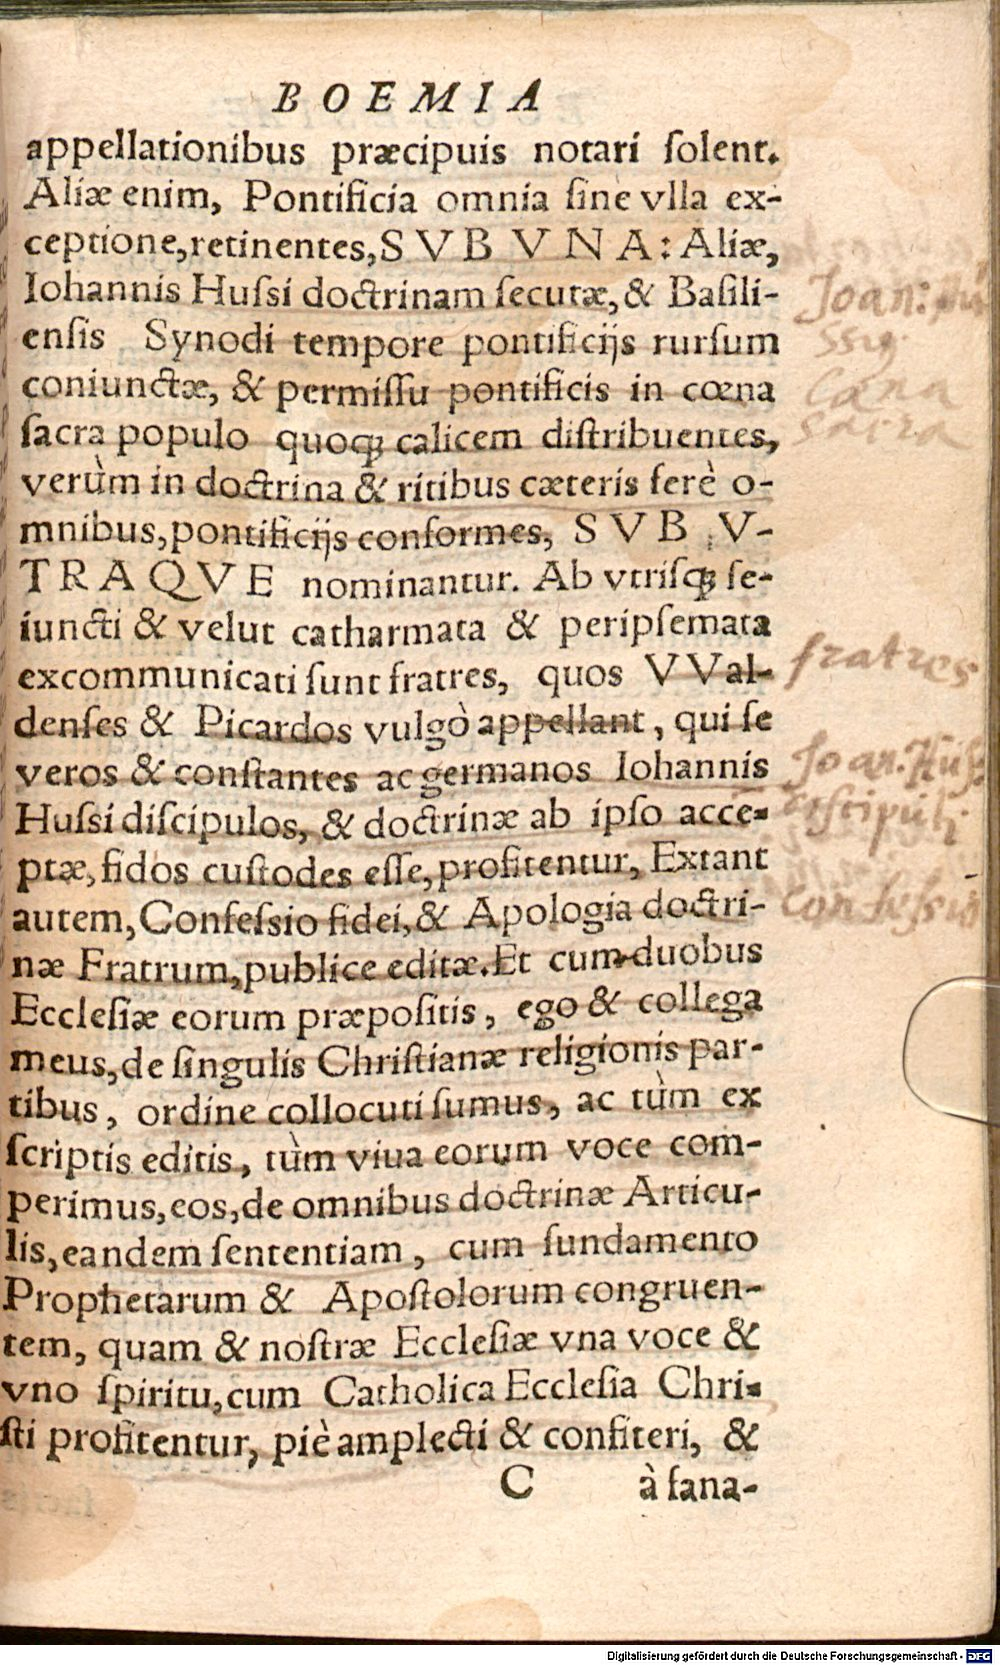 BOEMIA
appellationibus præcipuis notari ſolent.
Aliæ enim, Pontificia omnia ſine vlla ex-
ceptione, retinentes, SVB VNA: Aliæ,
Iohannis Huſsi doctrinam ſecutæ, & Baſili-
enſis Synodi tempore pontificijs rurſum
coniunctæ, & permiſſu pontificis in cœna
ſacra populo quoqꝫ calicem diſtribuentes,
verùm in doctrina & ritibus cæteris ferè o-
mnibus, pontificijs conformes, SVB V-
TRAQVE nominantur. Ab vtriſqꝫ ſe-
iuncti & velut catharmata & peripſemata
excommunicati ſunt fratres, quos VVal-
denſes & Picardos vulgò appellant, qui ſe
veros & conſtantes ac germanos Iohannis
Huſsi diſcipulos, & doctrinæ ab ipſo acce-
ptæ, fidos cuſtodes eſſe, profitentur, Extant
autem, Confeſsio fidei, & Apologia doctri-
næ Fratrum, publice editæ. Et cum duobus
Eccleſiæ eorum præpoſitis, ego & collega
meus, de ſingulis Chriſtianæ religionis par-
tibus, ordine collocuti ſumus, ac tùm ex
ſcriptis editis, tùm viua eorum voce com-
perimus, eos, de omnibus doctrinæ Articu-
lis, eandem ſententiam, cum fundamento
Prophetarum & Apoſtolorum congruen-
tem, quam & noſtræ Eccleſiæ vna voce &
vno ſpiritu, cum Catholica Eccleſia Chri-
ſti profitentur, piè amplecti & confiteri, &
C à ſana-
Joan:
Cæna
sacra
fratres
Joan. Huſs
diſcipuli
confeſsio
Digitalisierung gefördert durch die Deutsche Forschungsgemeinschaft - DFG